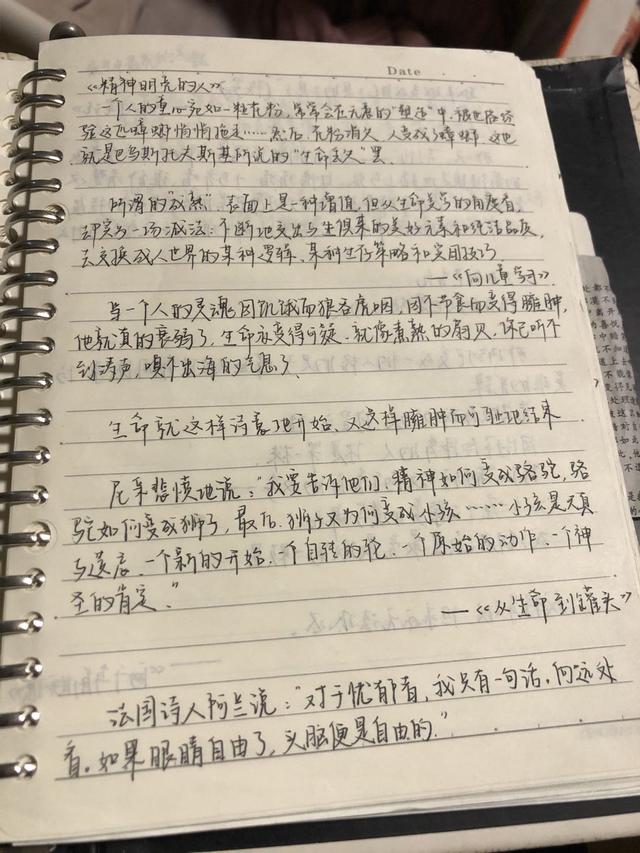 Date
《精神明亮的人》
一个人的童心宛如一粒花粉，常常会在无意的"塑造"中，被世俗经
验这匹蟑螂悄悄拖走……然后，花粉消失，人变成了蟑螂。这也
就是巴乌斯托夫斯基所说的"生命丢失"罢
所谓的"成熟"，表面上是一种增值，但从生命美学的角度看，
却实为一场减法：不断地交出与生俱来的美好元素和纯洁品质，
去交换成人世界的某种逻辑、某种生存策略和实用技巧
——《向儿童学习》
当一个人的灵魂因饥饿而狼吞虎咽，因不节食而变得臃肿，
他就真的衰弱了，生命亦变得可疑，就像煮熟的扇贝，你已听不
到涛声，嗅不出海的气息了
生命就这样诗意地开始，又这样臃肿而可耻地结束
尼采悲愤地说："我要告诉他们，精神如何变成骆驼，骆
驼如何变成狮子，最后，狮子又为何变成小孩……小孩是天真
与遗忘，一个新的开始，一个自转的轮，一个原始的动作，一个神
圣的肯定。"
——《从生命到罐头》
法国诗人阿兰说："对于忧郁者，我只有一句话，向远处
看。如果眼睛自由了，头脑便是自由的。"